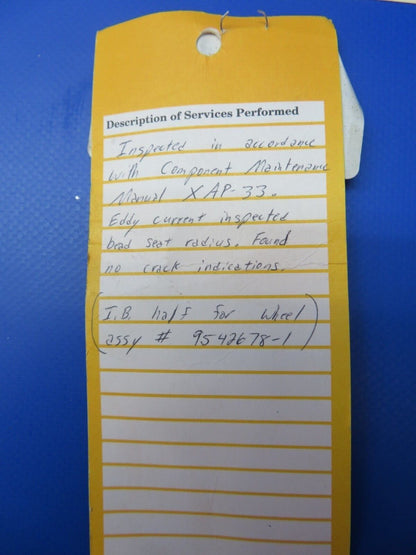 Description of Services Performed
Inspected in accordance
with Component Maintenance
Manual XAP-33.
Eddy current inspected
bead seat radius. Found
no crack indications.
(I.B. half for wheel
assy # 9542678-1)